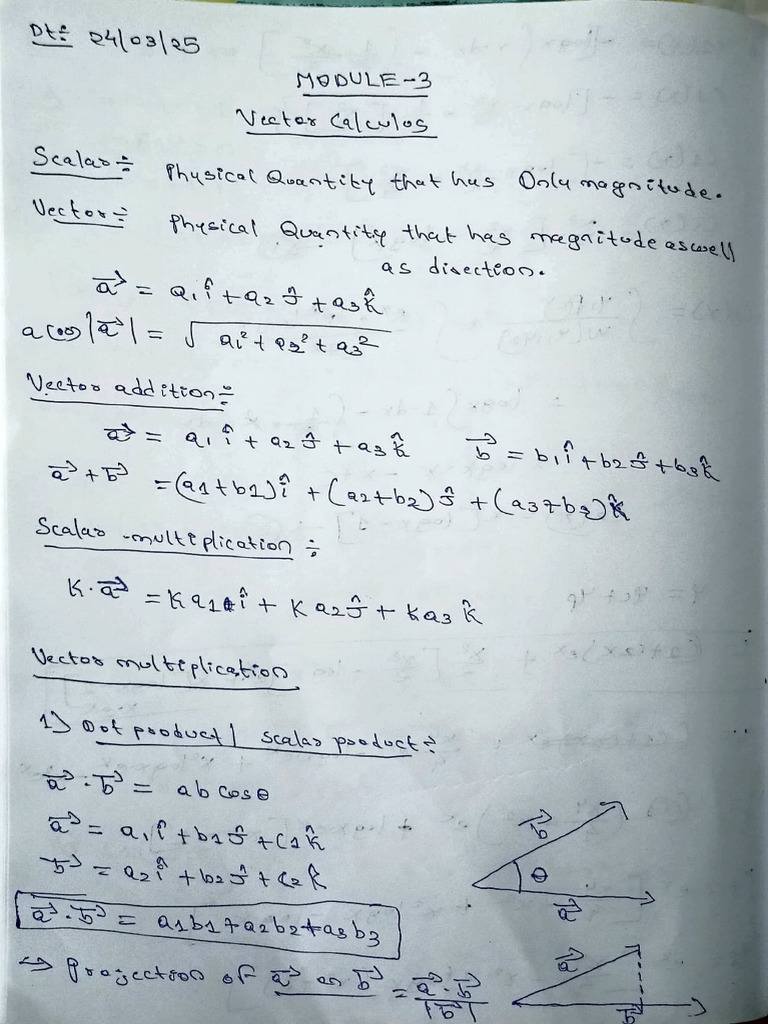 Dt:- 24/03/25
MODULE-3
Vector Calculos
Scalar:- Physical Quantity that has Only magnitude.
Vector:- Physical Quantity that has magnitude as well
as direction.
a⃗ = a₁î + a₂ĵ + a₃k̂
a or |a⃗| = √(a₁² + a₂² + a₃²)
Vector addition:-
a⃗ = a₁î + a₂ĵ + a₃k̂ b⃗ = b₁î + b₂ĵ + b₃k̂
a⃗ + b⃗ = (a1+b1)î + (a2+b2)ĵ + (a3+b3)k̂
Scalar multiplication:-
K·a⃗ = Ka1î + Ka2ĵ + Ka3k̂
Vector multiplication
1) Dot product | scalar product:-
a⃗·b⃗ = ab cosθ
a⃗ = a₁î + b1ĵ + C1k̂
b⃗ = a2î + b2ĵ + C2k̂
a⃗·b⃗ = a1b1+a2b2+a3b3
b⃗
θ
a⃗
⇒ Projection of a⃗ on b⃗ = a⃗·b⃗/|b⃗|
a⃗
b⃗